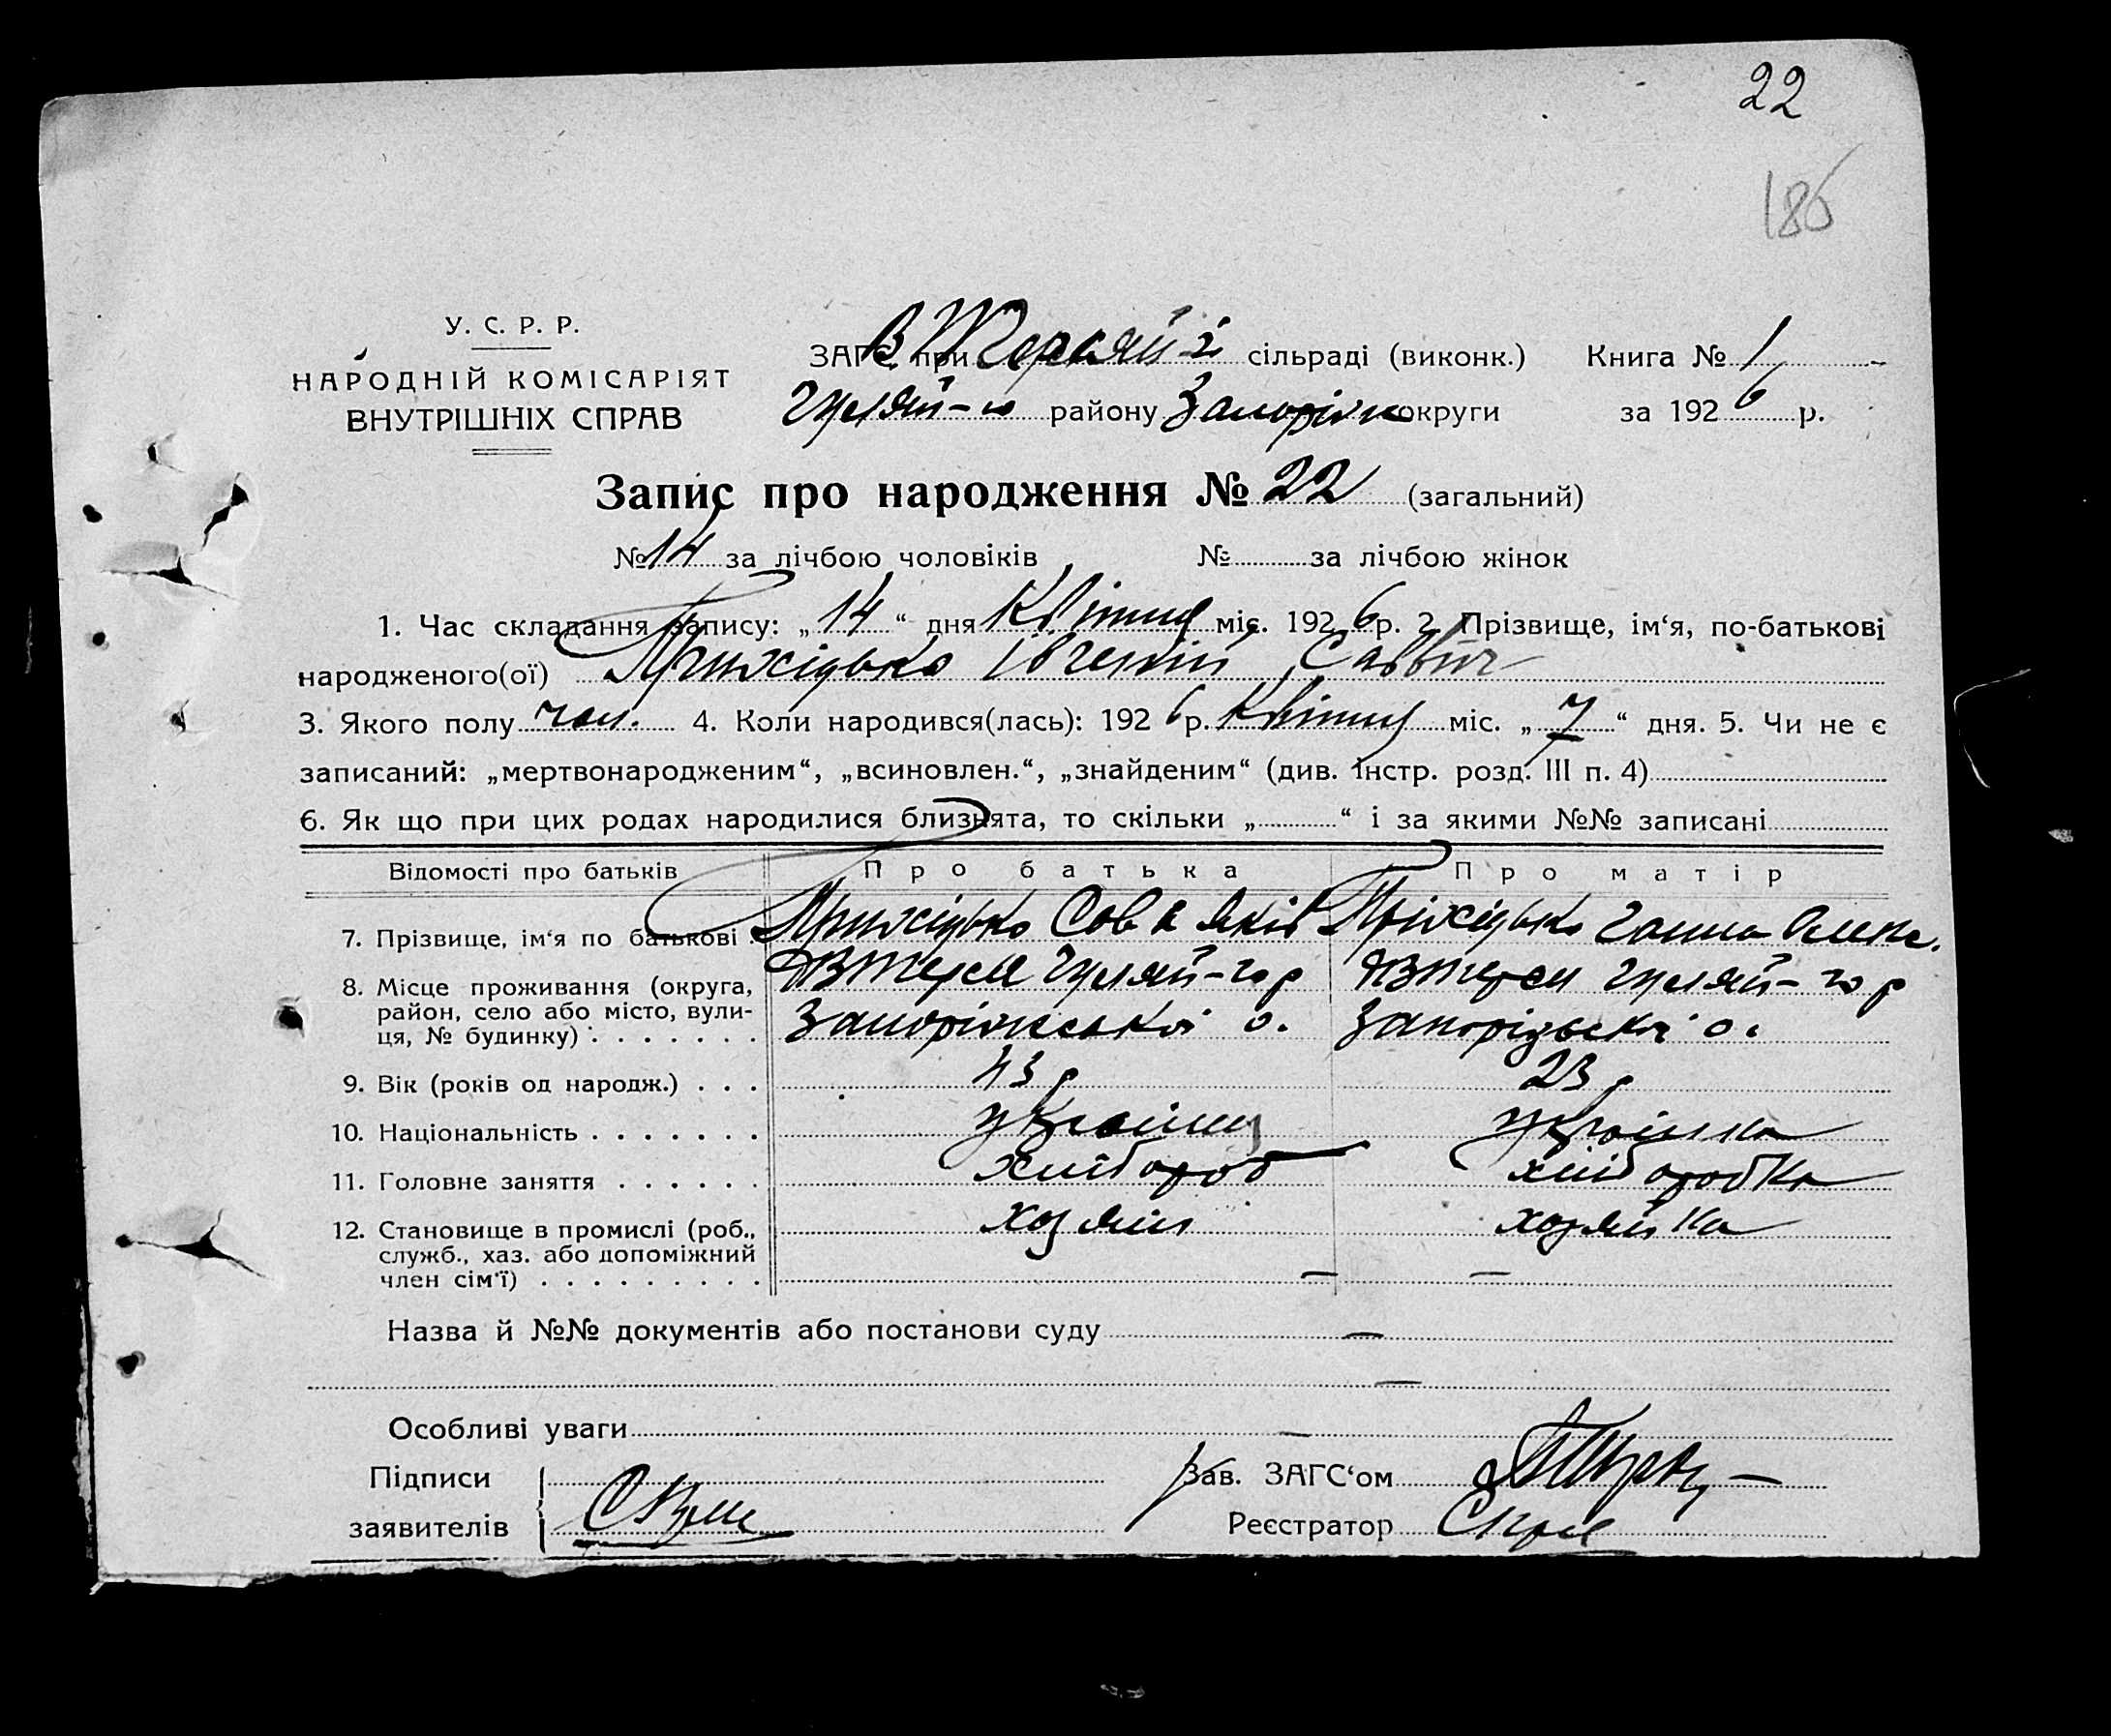 22
186
У. С. Р. Р.
НАРОДНІЙ КОМІСАРІЯТ
ВНУТРІШНІХ СПРАВ
ЗАГС при В Терсян-ї сільраді (виконк.) Книга № 1
Гуляй-го району Запоріжк округи за 1926 р.
Запис про народження № 22 (загальний)
№ 14 за лічбою чоловіків № за лічбою жінок
1. Час складання запису: „14“ дня Квітня міс. 1926 р. 2. Прізвище, ім‘я, по-батькові
народженого(ої) Прихідько Івгений Саввич
3. Якого полу чол. 4. Коли народився(лась): 1926 р. Квітня міс. „7“ дня. 5. Чи не є
записаний: „мертвонародженим“, „всиновлен.“, „знайденим“ (див. Інстр. розд. III п. 4)
6. Як що при цих родах народилися близнята, то скільки „ “ і за якими №№ записані
Відомості про батьків Про батька Про матір
7. Прізвище, ім‘я по батькові . Прихідько Сава Яків Прихідько Ганна Олекс.
8. Місце проживання (округа, Гуляй-го р Гуляй-го р
район, село або місто, вули-
ця, № будинку) . . . . . . . Запоріжської о. Запорізьскої о.
9. Вік (років од народж.) . . . 43 р 23 р
10. Національність . . . . . . . українец українка
11. Головне заняття . . . . . . хлібороб хліборобка
12. Становище в промислі (роб., хозяін хозяйка
служб., хаз. або допоміжний
член сім‘ї) . . . . . . . . . — —
Назва й №№ документів або постанови суду —
—
Особливі уваги —
Підписи Зав. ЗАГС‘ом
заявителів Реєстратор